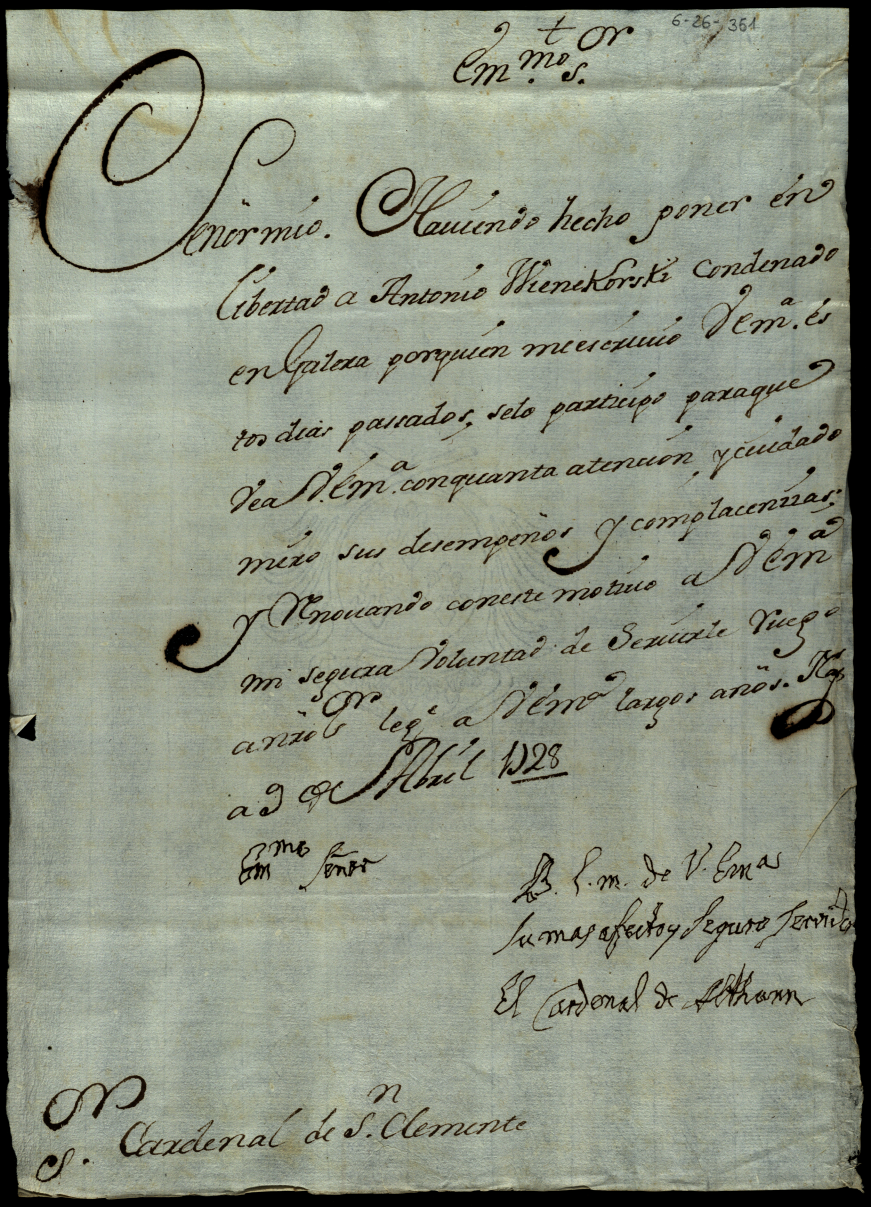 6-26-361
†
Em.mo S.or
Señor mio. Haviendo hecho poner én
libertad a Antonio Wienekorski Condenado
en Galera por quien me escrivio V Em.a és
tos dias passados, se lo participo para que
vea V. Em.a con quanta atencion, y cuidado
miro sus desempeños y complacenzias;
y Renovando con este motivo a V Ema
mi segura Voluntad de Servirle Ruego
a nro Sor le g.e a V Ema largos años. Nap
a 9 de Abril 1728
Emmo Señor
B. l. m. de V. Ema
su mas afecto y seguro servidor
El Cardenal de Althann
S.or Cardenal de S.n Clemente